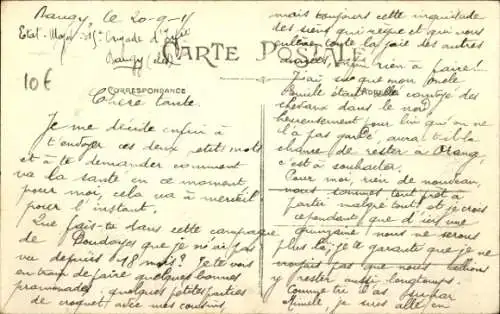 Baugy, le 20-9-15
Etat-Major
Baugy
10€
CARTE POSTALE
CORRESPONDANCE
Chère tante.
Je me décide enfin à
t'envoyer ces deux petits mots
et à te demander comment
va la santé en ce moment,
pour moi, cela va à merveille
pour l'instant.
Que fais-tu dans cette campagne
de que je n'ai pas
vu depuis 18 mois? Je te vois
en train de faire quelques bonnes
promenades, quelques petites parties
de croquet avec mes cousins,
mais toujours cette inquiétude
des siens qui et qui vous
toute la joie des autres
années, rien à faire!
J'ai su que mon oncle
Emile étant allé des
chevaux dans le nord,
heureusement pour lui qu'on ne
l'a pas gardé, aura-t-il la
chance de rester à Orange,
c'est à souhaiter.
Pour moi, rien de nouveau,
nous sommes tout prêt à
partir malgré tout et je crois
cependant que d'ici une
quinzaine nous ne serons
plus là, je te garantis que je ne
pas que nous allions
y rester aussi longtemps.
Comme tu l'as par
je suis allé en